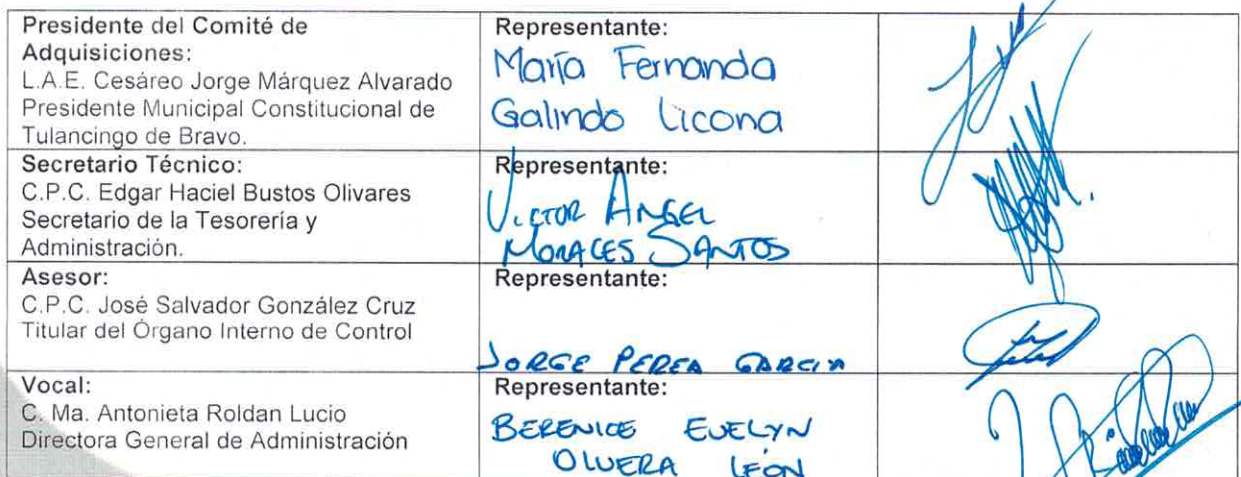 Presidente del Comité de
Adquisiciones:
L.A.E. Cesáreo Jorge Márquez Alvarado
Presidente Municipal Constitucional de
Tulancingo de Bravo.
Representante:
María Fernanda
Galindo Licona
Secretario Técnico:
C.P.C. Edgar Haciel Bustos Olivares
Secretario de la Tesorería y
Administración.
Representante:
VICTOR ANGEL
MORALES SANTOS
Asesor:
C.P.C. José Salvador González Cruz
Titular del Órgano Interno de Control
Representante:
JORGE PEREA GARCIA
Vocal:
C. Ma. Antonieta Roldan Lucio
Directora General de Administración
Representante:
BERENICE EVELYN
OLVERA LEÓN